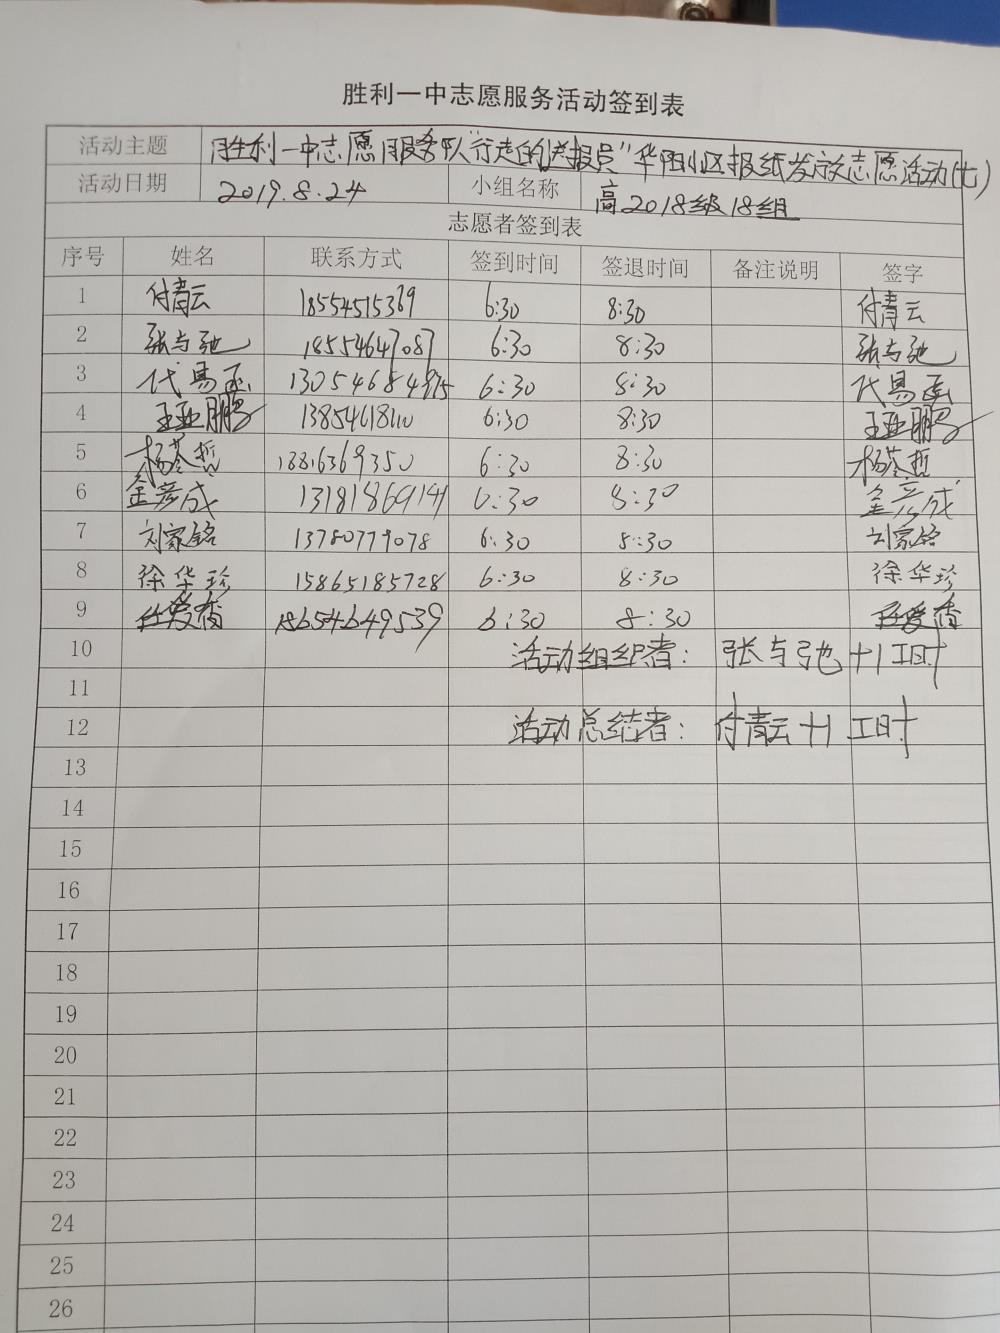 胜利一中志愿服务活动签到表
活动主题 胜利一中志愿服务队"行走的送报员"华阳小区报纸发放志愿活动(七)
活动日期 2019.8.24 小组名称 高2018级18组
志愿者签到表
序号 姓名 联系方式 签到时间 签退时间 备注说明 签字
1 付青云 18554515369 6:30 8:30 付青云
2 张与弛 18554647087 6:30 8:30 张与弛
3 代易函 6:30 8:30 代易函
4 王亚鹏 6:30 8:30 王亚鹏
5 杨苓哲 18816369350 6:30 8:30 杨苓哲
6 金彦成 13181869141 6:30 8:30 金彦成
7 刘家铭 13780779078 6:30 8:30 刘家铭
8 徐华珍 15865185728 6:30 8:30 徐华珍
9 任爱香 18654649539 6:30 8:30 任爱香
10 活动组织者: 张与弛 +1 工时
11
12 活动总结者: 付青云 +1 工时
13
14
15
16
17
18
19
20
21
22
23
24
25
26